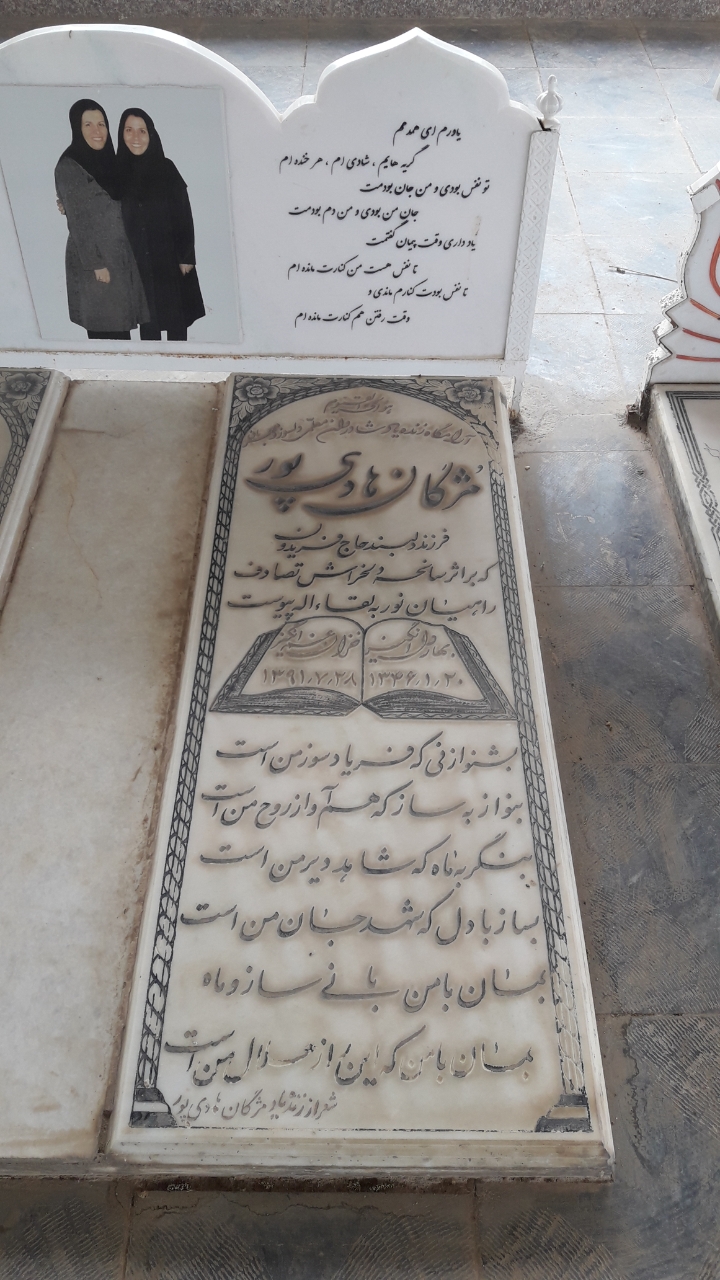 یاورم ای همدمم
گریه هایم ، شادی ام ، هر خنده ام
تو نفس بودی و من جان بودمت
جان من بودی و من دم بودمت
یاد داری وقت پیمان گفتمت
تا نفس هست من کنارت مانده ام
تا نفس بودت کنارم ماندی و
وقت رفتن هم کنارت مانده ام
آرامگاه زنده یاد شادروان معلمی دلسوز و
مژگان هادی پور
فرزند دلبند حاج فریدون
که بر اثر سانحه دلخراش تصادف
راهیان نور به لقاء اله پیوست
بهار دل انگیز
خزان غم انگیز
۱۳۴۶٫۱٫۲۰
۱۳۹۱٫۷٫۲۸
بشنو از نی که فریاد سوز من است
بنواز به ساز که هم آواز روح من است
بنگر به ماه که شاهد دیر من است
بساز با دل که شهد جان من است
بمان با من با نی ساز و ماه
بمان با من که این از من است
شعر از زنده یاد مژگان هادی پور